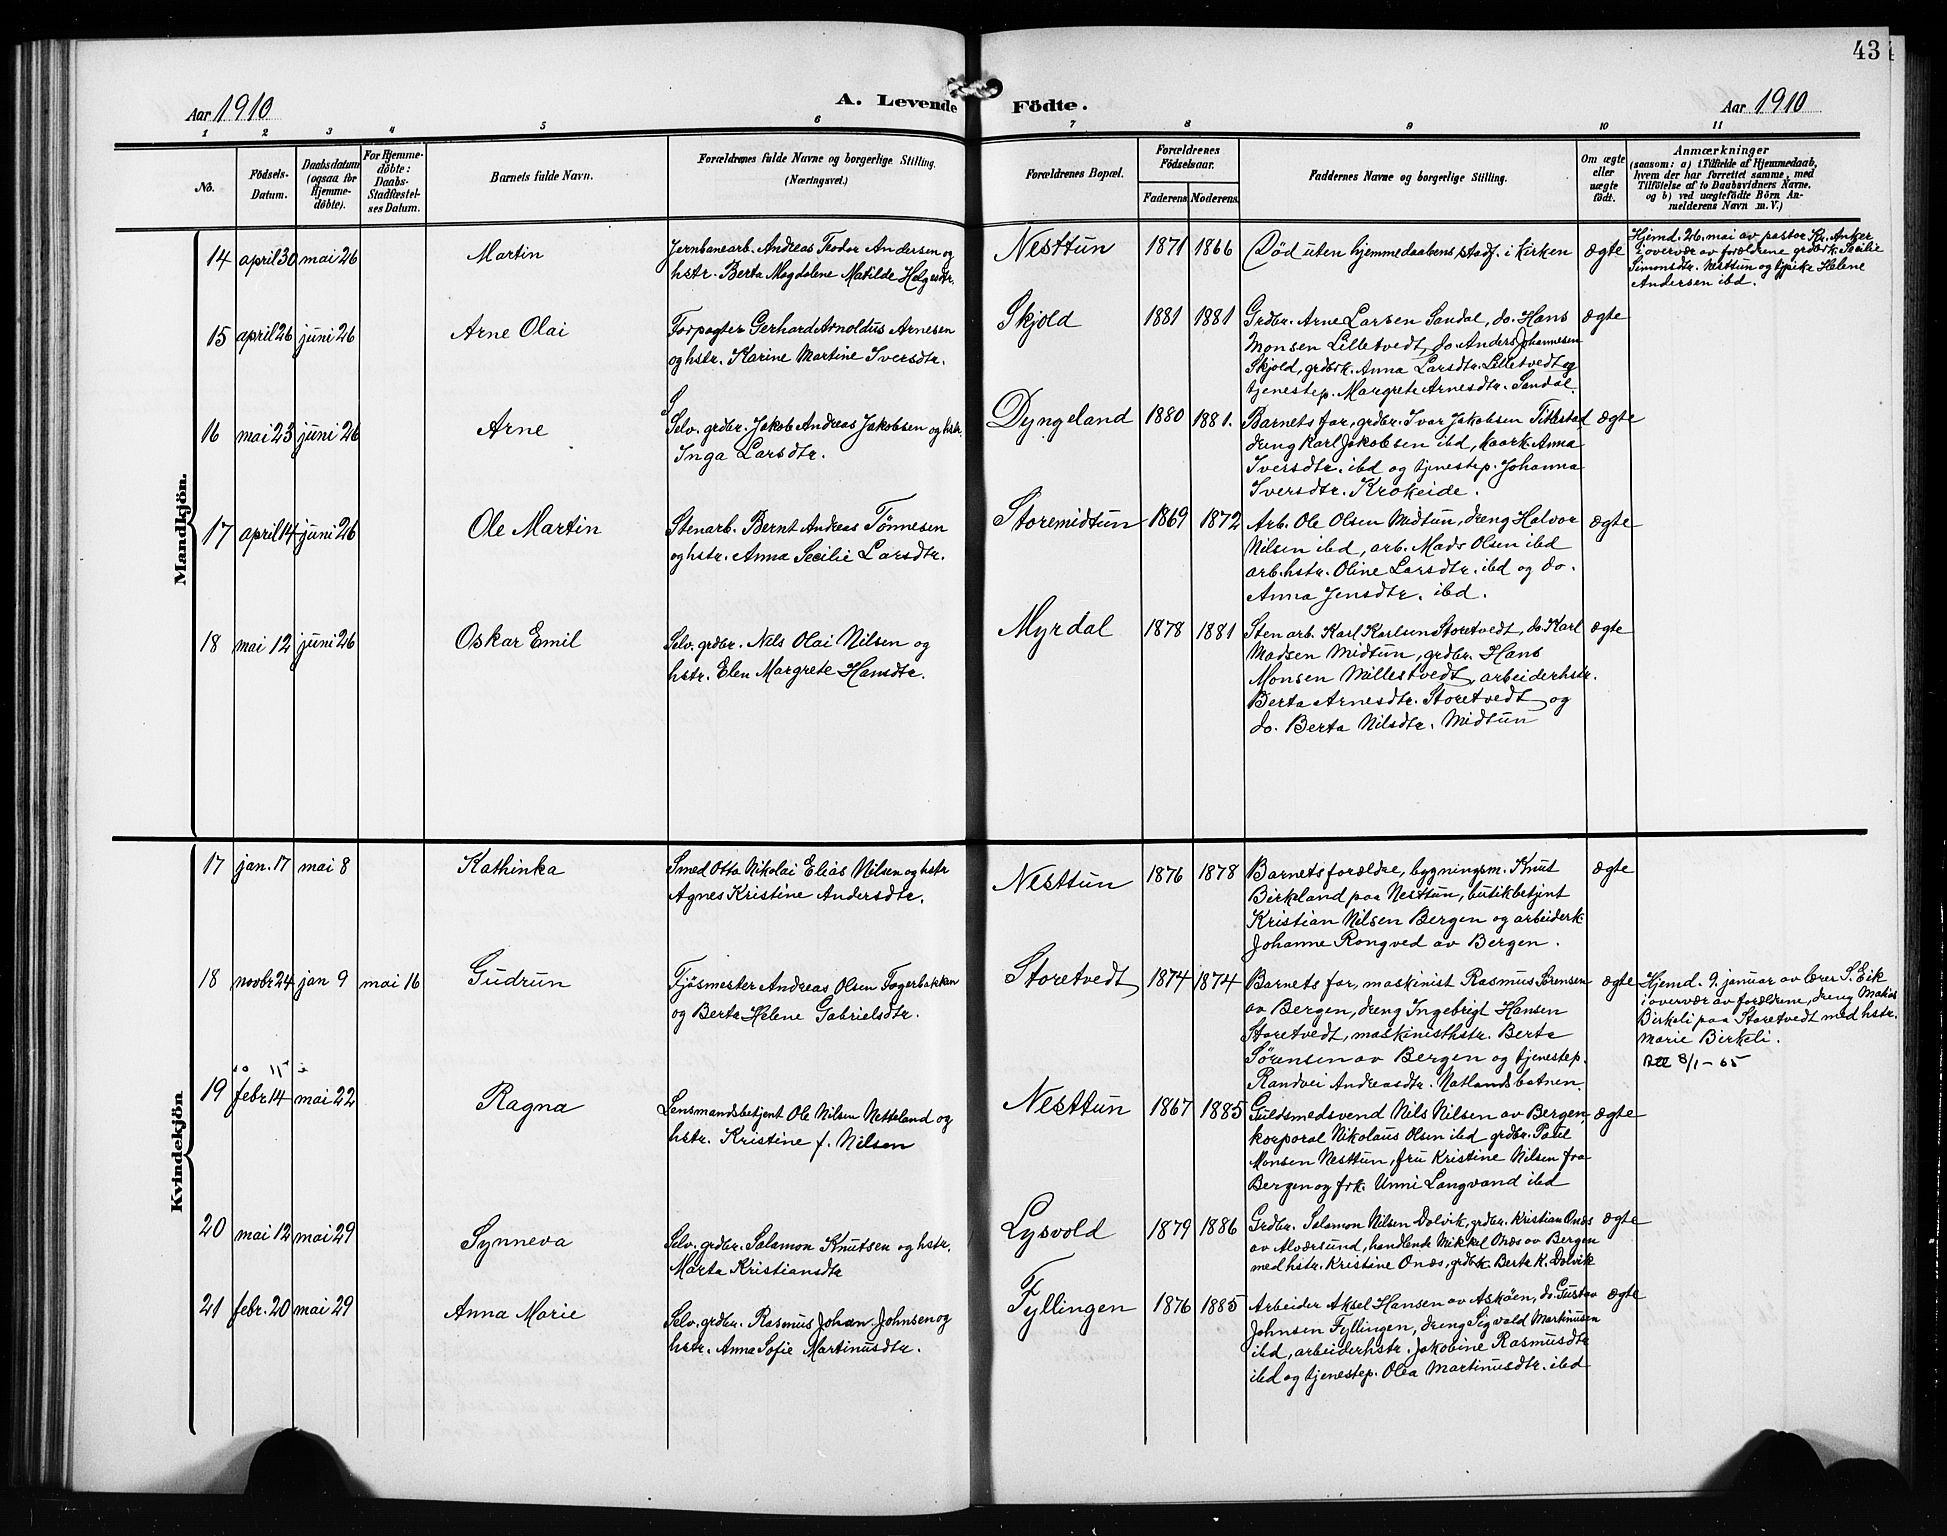 43
Aar 1910
A. Levende Födte.
Aar 1910
1 2 3 4 5 6 7 8 9 10 11
No.
Födsels-
Datum.
Daabsdatum
(ogsaa for
Hjemme-
döbte).
For Hjemme-
döbte:
Daabs-
Stadfæstel-
ses Datum.
Barnets fulde Navn.
Forældrenes fulde Navne og borgerlige Stilling.
(Næringsvei.)
Forældrenes Bopæl.
Forældrenes
Födselsaar.
Faderens Moderens
Faddernes Navne og borgerlige Stilling.
Om ægte
eller
uægte
födt.
Anmærkninger
(saasom: a) i Tilfælde af Hjemmedaab,
hvem der har forrettet samme, med
Tilföielse af to Daabsvidners Navne,
og b) ved uægtefödte Börn An-
melderens Navn m. V.)
Mandkjön.
14 april 30 mai 26 Martin
Jernbanearb. Andreas Teodor Andersen og
hstr. Berta Magdalene Matilde Helgesdtr.
Nesttun 1871 1866 Död uten hjemmedaabens stadf. i kirken ægte
Hjemd. 26. mai av pastor Kr. Anker
i overvær av forældrene, grdbrk. Secilie
Simonsdtr. Nesttun og tjpike Helene
Andersen ibd.
15 april 26 juni 26 Arne Olai
Forpagter Gerhard Arnoldus Arnesen
og hstr. Karine Martine Iversdtr.
Skjold 1881 1881 Grdbr. Arne Larsen Sandal, do. Hans ægte
Monsen Lilletvedt, do. Anders Johannesen
Skjold, grdbrk. Anna Larsdtr. Lilletvedt og
tjenestep. Margrete Arnesdtr. Sandal.
16 mai 23 juni 26 Arne
Selv. grdbr. Jakob Andreas Jakobsen og hstr.
Inga Larsdtr.
Dyngeland 1880 1881. Barnets far, grdbr. Ivar Jakobsen Titlestad ægte
dreng Karl Jakobsen ibd, kaark. Anna
Iversdtr. ibd og tjenestep. Johanna
Iversdtr. Krokeide.
17 april 14 juni 26 Ole Martin
Stenarb. Bernt Andreas Tönnesen
og hstr. Anna Secilie Larsdtr.
Storemidtun 1869 1872 Arb. Ole Olsen Midtun, dreng Halvor ægte
Nilsen ibd, arb. Mads Olsen ibd
arb.hstr. Oline Larsdtr. ibd og do.
Anna Jensdtr. ibd.
18 mai 12 juni 26 Oskar Emil
Selv. grdbr. Nils Olai Nilsen og
hstr. Elen Margrete Hansdtr.
Myrdal 1878 1881 Stenarb. Karl Karlsen Storetvedt, do. Karl ægte
Madsen Midtun, grdbr. Hans
Monsen Millestvedt, arbeiderhstr.
Berta Arnesdtr. Storetvedt og
do. Berta Nilsdtr. Midtun
Kvindekjön
17 jan. 17 mai 8 Kathinka
Smed Otto Nikolai Elias Nilsen og hstr
Agnes Kristine Andersdtr.
Nesttun 1876 1878 Barnets forældre, bygningsm. Knut ægte
Birkeland paa Nesttun, butikbetjent
Kristian Nilsen Bergen og arbeiderk
Johanne Rongved av Bergen.
18 novbr 24 jan 9 mai 16 Gudrun
Fjösmester Andreas Olsen Fagerbakken
og Berta Helene Gabrielsdtr.
Storetvedt 1874 1874 Barnets far, maskinist Rasmus Sörensen ægte
av Bergen, dreng Ingebrigt Hansen
Storetvedt, maskinisthstr. Berta
Sörensen av Bergen og tjenestep.
Randvei Andreasdtr. Natlandsbotnen.
Hjemd. 9. januar av lærer S. Eik
i overvær av forældrene, dreng Matias
Birkeli paa Storetvedt med hstr.
Marie Birkeli.
8/1-65
19 febr 14 mai 22 Ragna
Lensmandsbetjent Ole Nilsen Netteland og
hstr. Kristine f. Nilsen
Nesttun 1867 1885 Guldsmedsvend Nils Nilsen av Bergen, ægte
korporal Nikolaus Olsen ibd grdbr. Paul
Monsen Nesttun, fru Kristine Nilsen fra
Bergen og frk. Unni Langvand ibd
20 mai 12 mai 29 Synneva
Selv. grdbr. Salamon Knutsen og hstr.
Marta Kristiansdtr
Lysvold 1879 1886 Grdbr. Salamon Nilsen Dolvik, grdbr. Kristian Onæs ægte
av Alværsund, handlende Mikkel Onæs av Bergen
med hstr. Kristine Onæs, grdbrk. Berta K. Dolvik
21 febr. 20 mai 29 Anna Marie
Selv. grdbr. Rasmus Johan Johnsen og
hstr. Anna Sofie Martinusdtr.
Fyllingen 1876 1885 Arbeider Aksel Hansen av Asköen, do. Gustav ægte
Johnsen Fyllingen, dreng Sigvald Martinusen
ibd, arbeiderhstr. Jakobine Rasmusdtr
ibd og tjenestep. Olea Martinusdtr. ibd